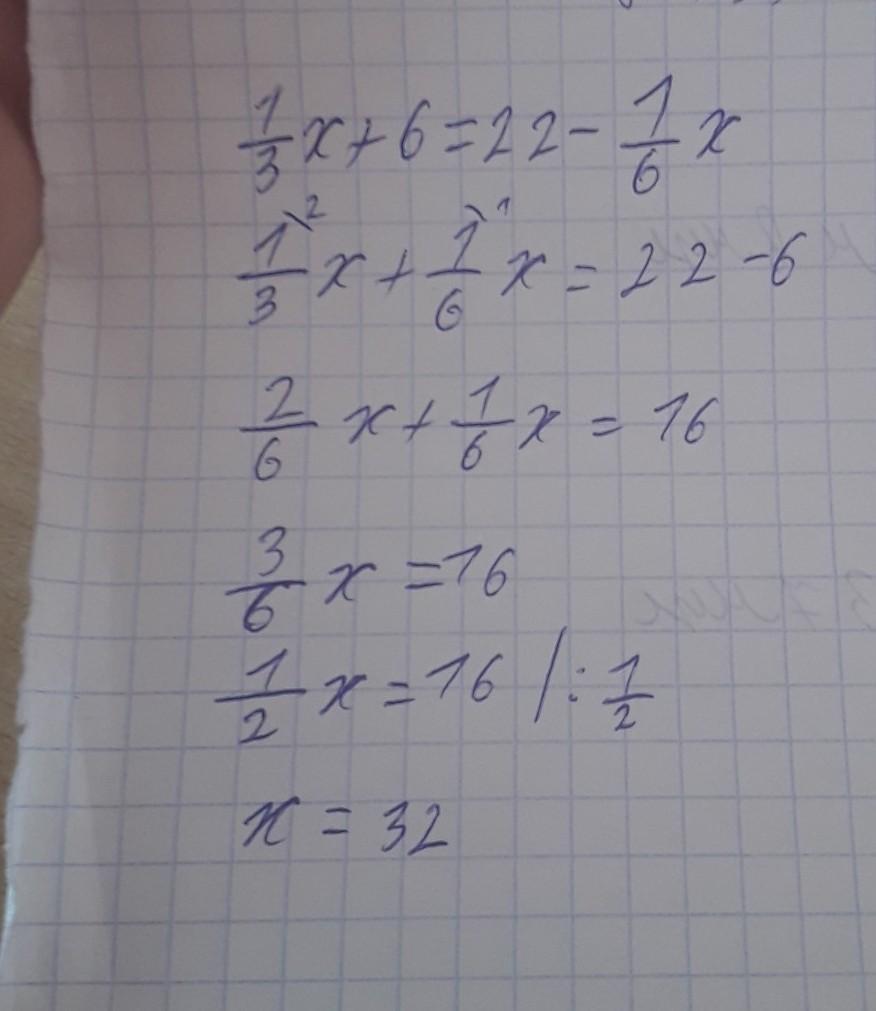 1/3 x + 6 = 22 - 1/6 x
1\2/3 x + 1\1/6 x = 22 - 6
2/6 x + 1/6 x = 16
3/6 x = 16
1/2 x = 16 / : 1/2
x = 32